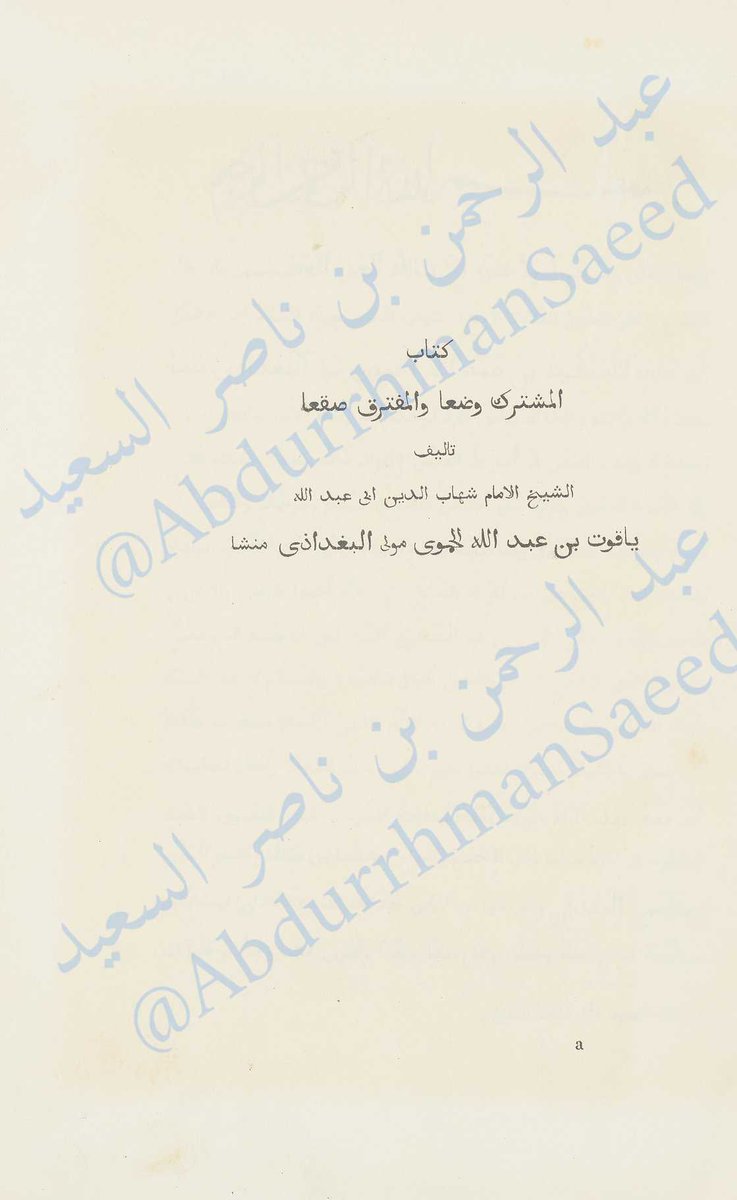 كتاب
المشترك وضعا والمفترق صقعا
تاليف
الشيخ الامام شهاب الدين ابى عبد الله
ياقوت بن عبد الله الحموى مولى البغداذى منشا
a
عبد الرحمن بن ناصر السعيد
@AbdurrhmanSaeed
عبد الرحمن بن ناصر السعيد
@AbdurrhmanSaeed